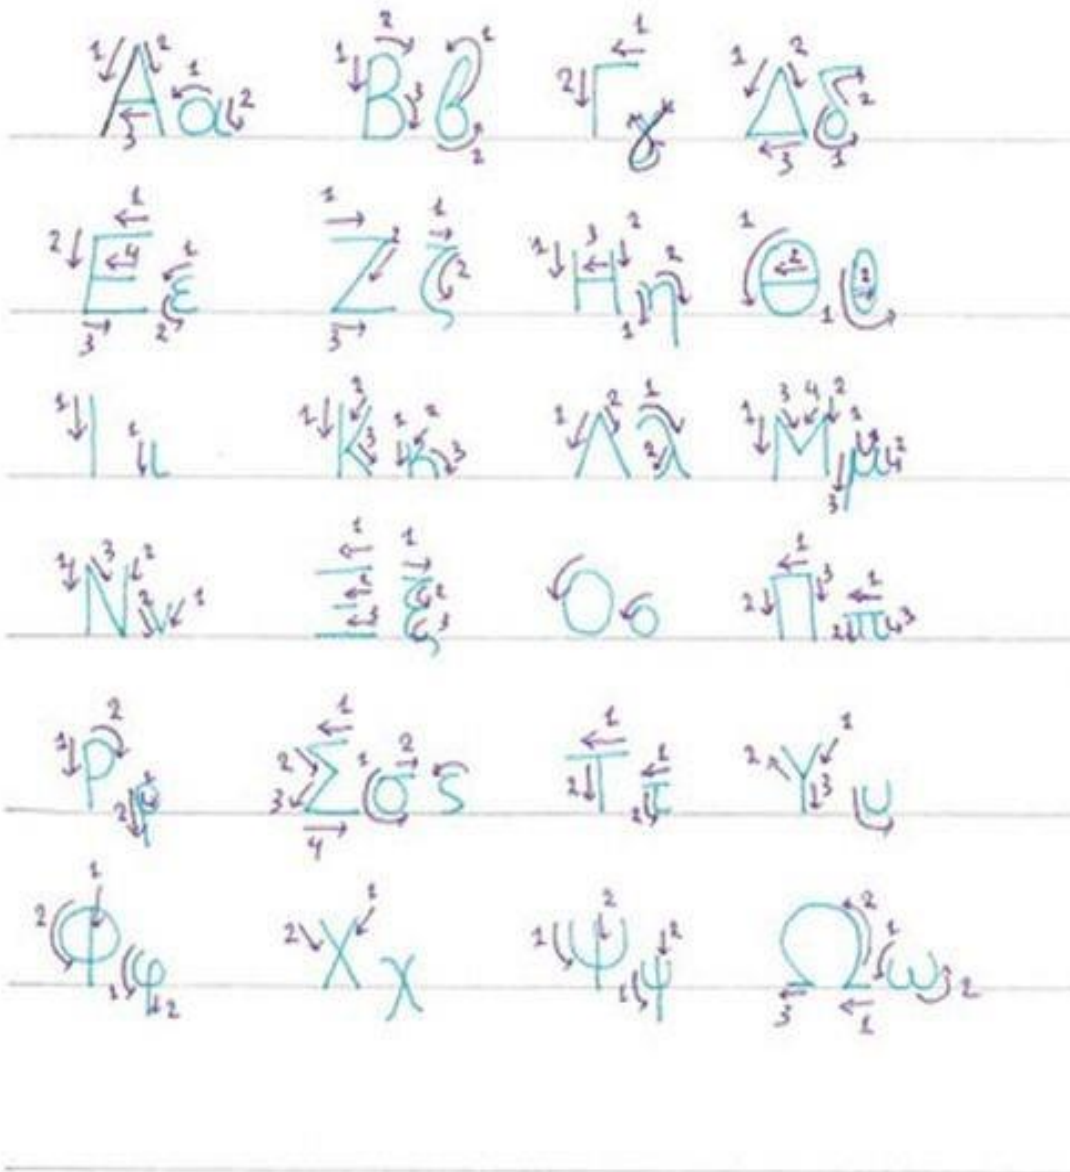 Α α Β β Γ γ Δ δ
Ε ε Ζ ζ Η η Θ θ
Ι ι Κ κ Λ λ Μ μ
Ν ν Ξ ξ Ο ο Π π
Ρ ρ Σ σ ς Τ τ Υ υ
Φ φ Χ χ Ψ ψ Ω ω